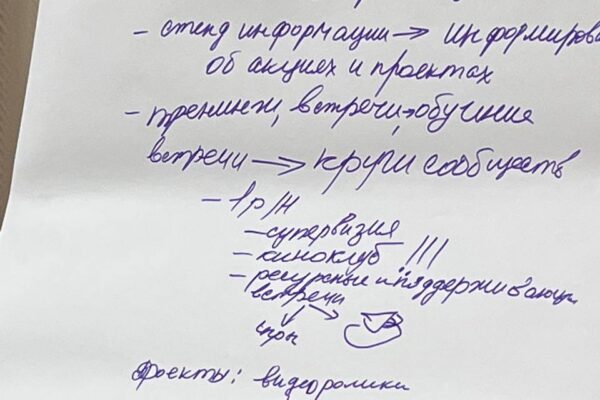 - стенд информации → информирова
об акциях и проектах
- тренинги, встречи → обучение
встречи → круги сообществ
- 1 р/н
- супервизия
- киноклуб !!!
- ресурсные и поддерживающи
встречи
Проекты: видеоролики